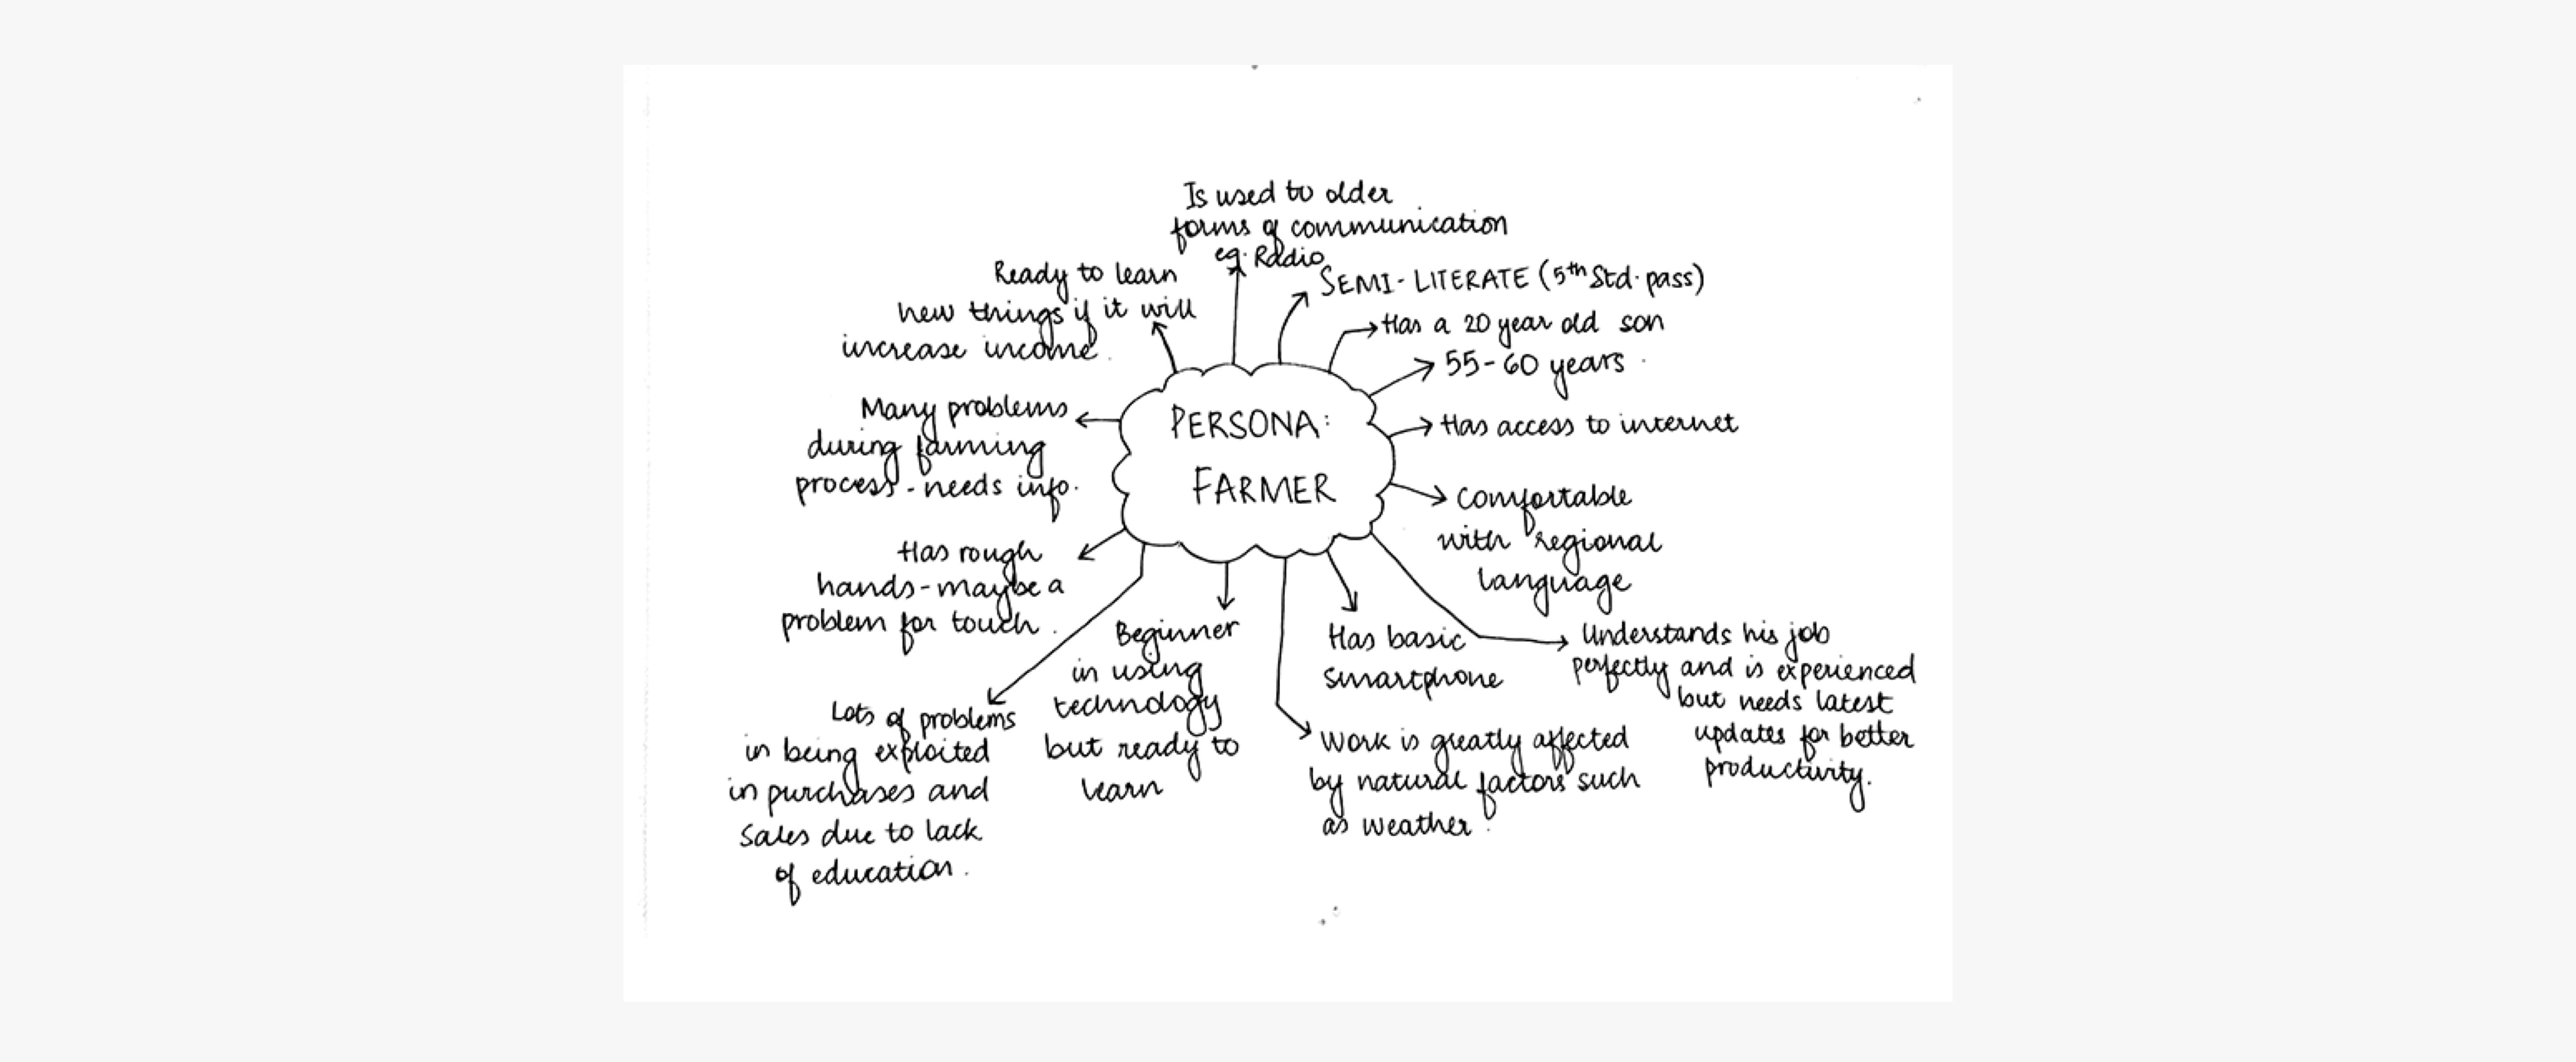 PERSONA:
FARMER
Is used to older
forms of communication
eg. Radio
SEMI-LITERATE (5th Std. pass)
Has a 20 year old son
55-60 years
Has access to internet
Comfortable
with regional
language
Understands his job
perfectly and is experienced
but needs latest
updates for better
productivity.
Has basic
smartphone
Work is greatly affected
by natural factors such
as weather.
Beginner
in using
technology
but ready to
learn
Lots of problems
in being exploited
in purchases and
sales due to lack
of education.
Has rough
hands-maybe a
problem for touch.
Many problems
during farming
process-needs info.
Ready to learn
new things if it will
increase income.